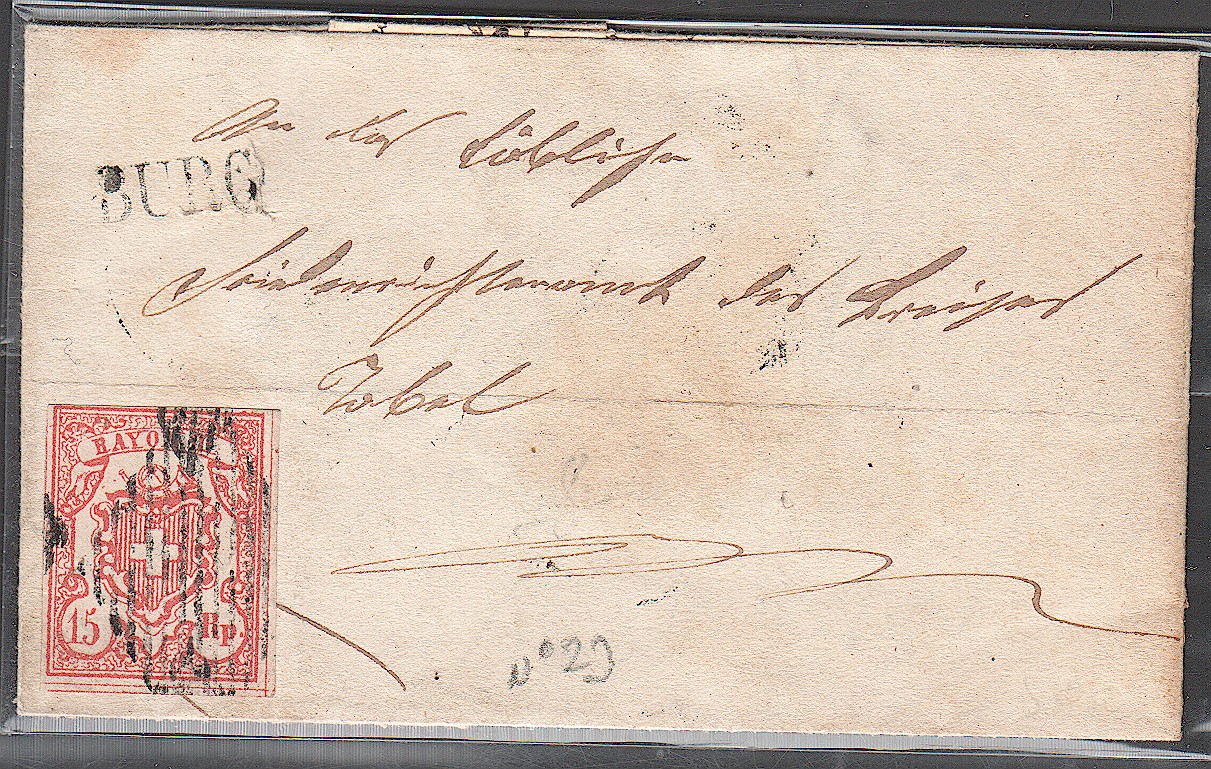 An das Löbliche
BURG
Friedensrichteramt des Kreises
Tobel
RAYON
15 Rp.
N° 29